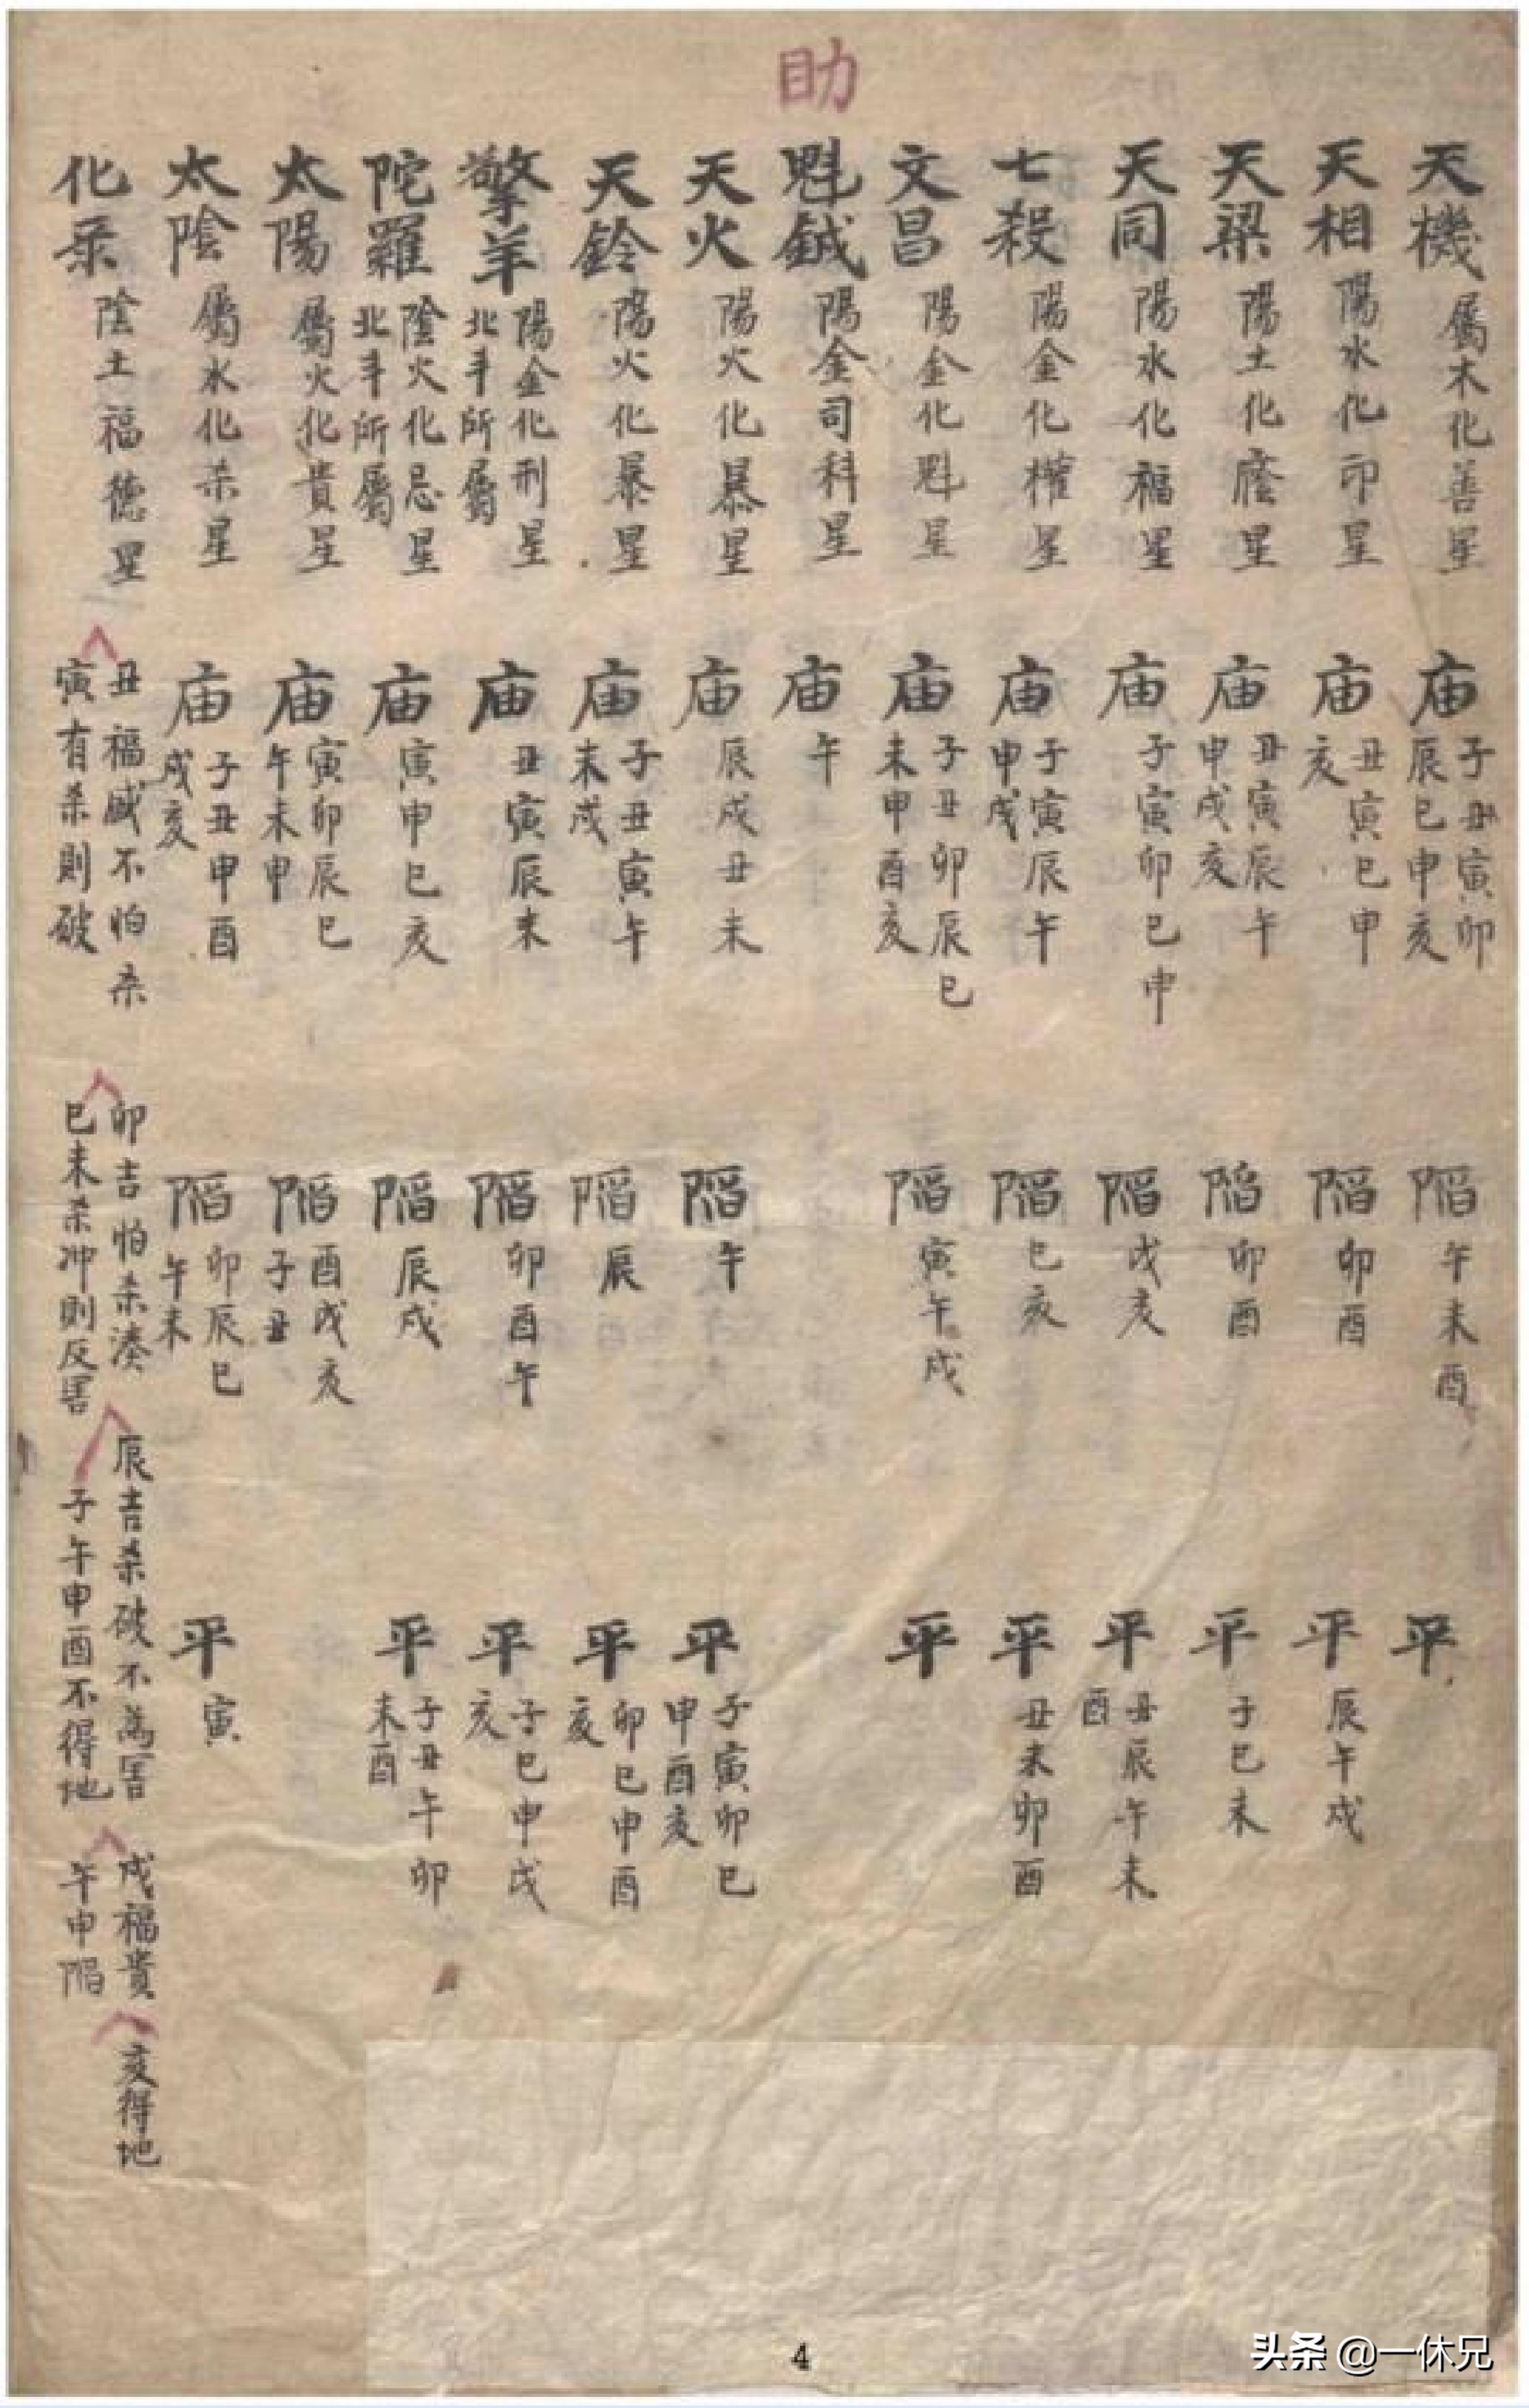 助
天機 屬木化善星 庙 子丑寅卯辰巳申亥 陷 午未酉 平
天相 陽水化印星 庙 丑寅巳申亥 陷 卯酉 平 辰午戌
天梁 陽土化廕星 庙 丑寅辰午申戌亥 陷 卯酉 平 子巳未
天同 陽水化福星 庙 子寅卯巳申 陷 戌亥 平 丑辰午未酉
七殺 陽金化權星 庙 子寅辰午申戌 陷 巳亥 平 丑未卯酉
文昌 陽金化魁星 庙 子丑卯辰巳未申酉亥 陷 寅午戌 平
魁鉞 陽金司科星 庙 午
天火 陽火化暴星 庙 辰戌丑未 陷 午 平 子寅卯巳申酉亥
天鈴 陽火化暴星 庙 子丑寅午未戌 陷 辰 平 卯巳申酉亥
擎羊 陽金化刑星北斗所屬 庙 丑寅辰未 陷 卯酉午 平 子巳申戌亥
陀羅 陰火化忌星北斗所屬 庙 寅申巳亥 陷 辰戌 平 子丑午卯未酉
太陽 屬火化貴星 庙 寅卯辰巳午未申 陷 酉戌亥子丑
太陰 屬水化杀星 庙 子丑申酉戌亥 陷 卯辰巳午未 平 寅
化杀 陰土福德星 丑福威不怕杀寅有杀則破 卯吉怕杀湊巳未杀冲則反害 辰吉杀破不為害子午申酉不得地 戌福貴午申陷 亥得地
4
头条 @一休兄